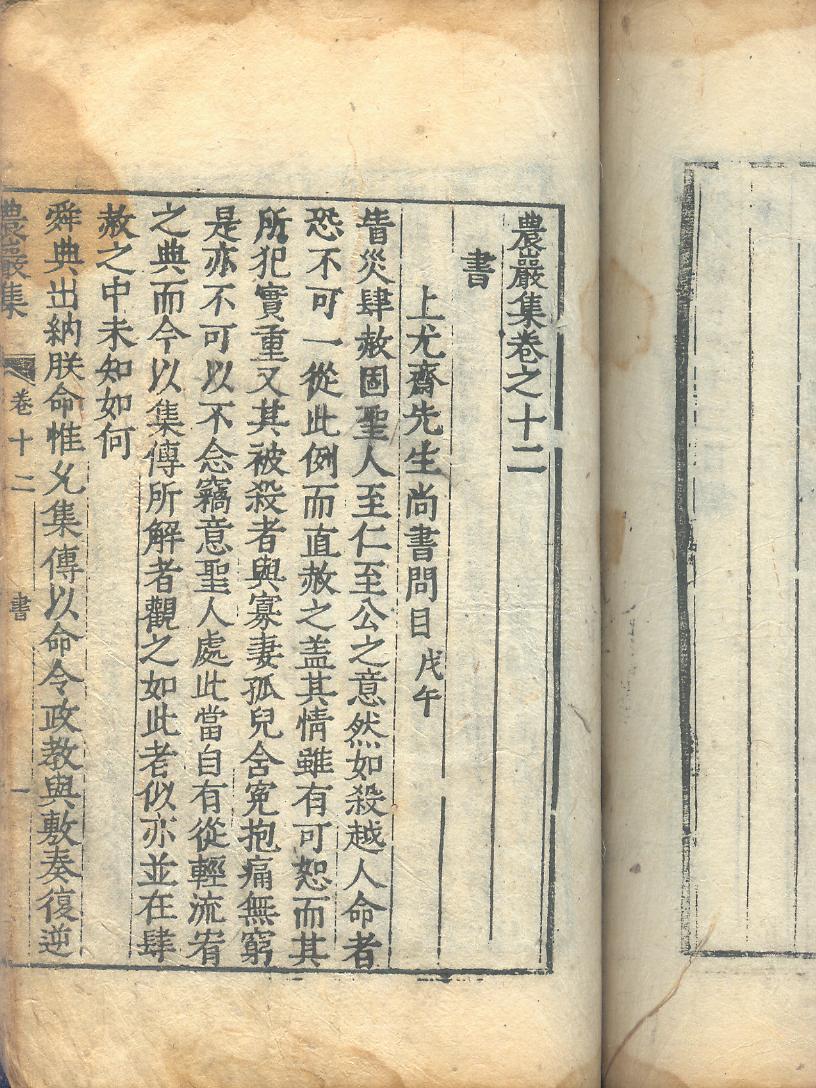 農巖集卷之十二
書
上尤齋先生尚書問目 戊午
眚災肆赦固聖人至仁至公之意然如殺越人命者
恐不可一從此例而直赦之盖其情雖有可恕而其
所犯實重又其被殺者與寡妻孤兒含寃抱痛無窮
是亦不可以不念竊意聖人處此當自有從輕流宥
之典而今以集傳所解者觀之如此者似亦並在肆
赦之中未知如何
舜典出納朕命惟允集傳以命令政教與敷奏復逆
農巖集 卷十二 書 一